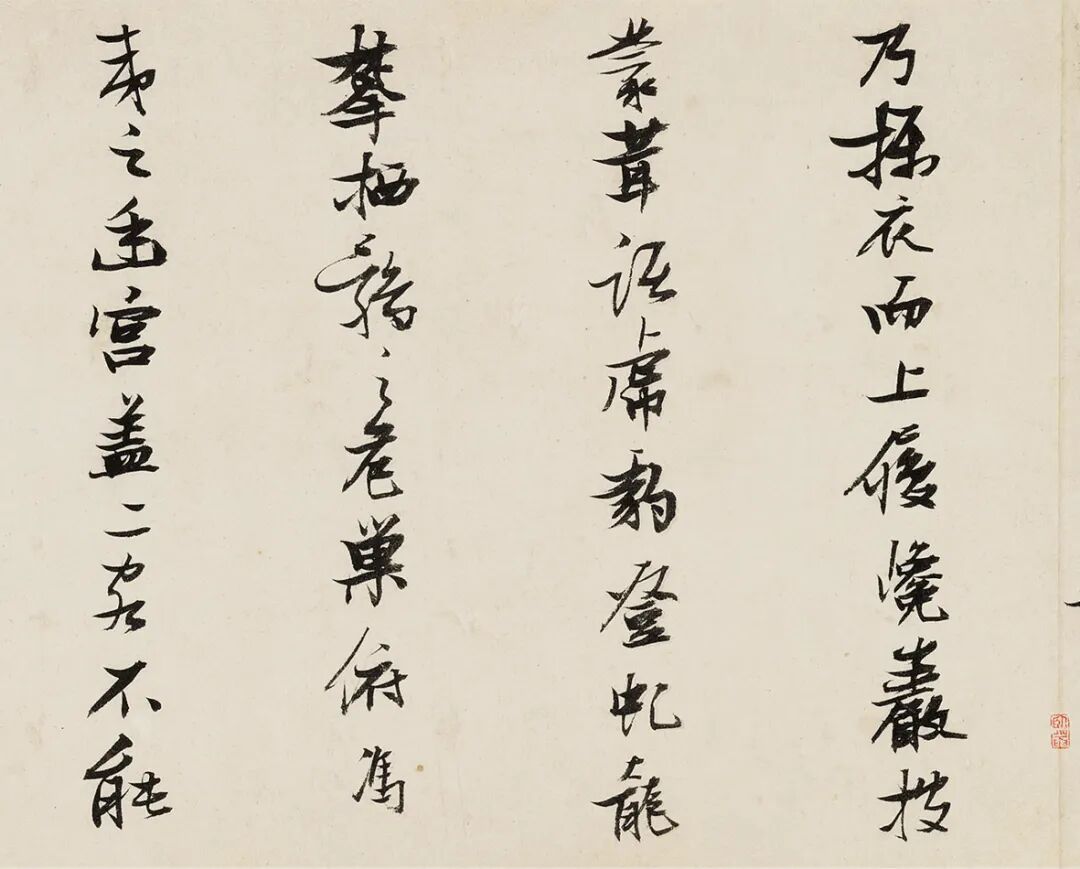 乃攝衣而上履巉巖披
蒙茸踞虎豹登虬龍
攀栖鶻之危巢俯馮
夷之幽宮盖二客不能